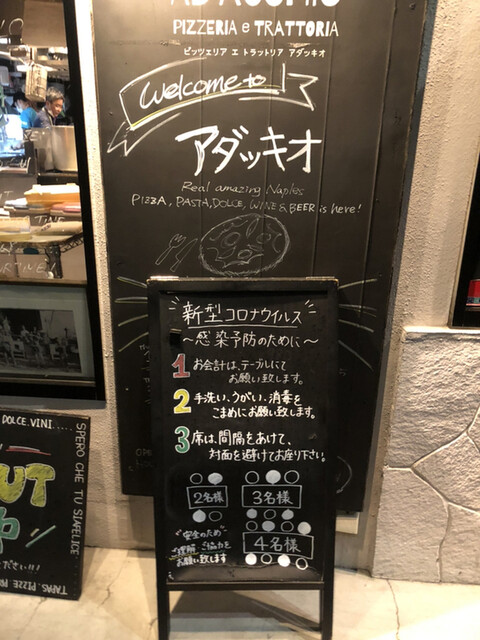 PIZZERIA e TRATTORIA
ピッツェリア エ トラットリア アダッキオ
Welcome to!
アダッキオ
Real amazing Naples
PIZZA, PASTA, DOLCE, WINE & BEER is here!
新型コロナウイルス
〜感染予防のために〜
1 お会計は、テーブルにて
お願い致します。
2 手洗い、うがい、消毒を
こまめにお願い致します。
3 席は、間隔をあけて、
対面を避けてお座り下さい。
2名様
3名様
4名様
安全のため
ご理解、ご協力を
お願い致します
DOLCE. VINI.....
SPERO CHE TU SIA FELICE.
UT
中
TAPAS. PIZZE